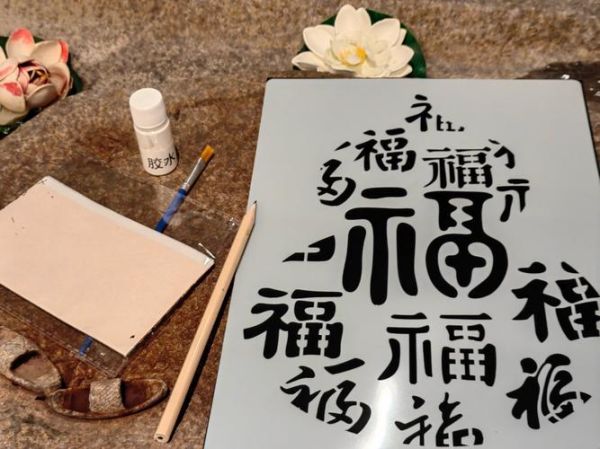 胶水
福
福
福
福
福
福
福
福
福